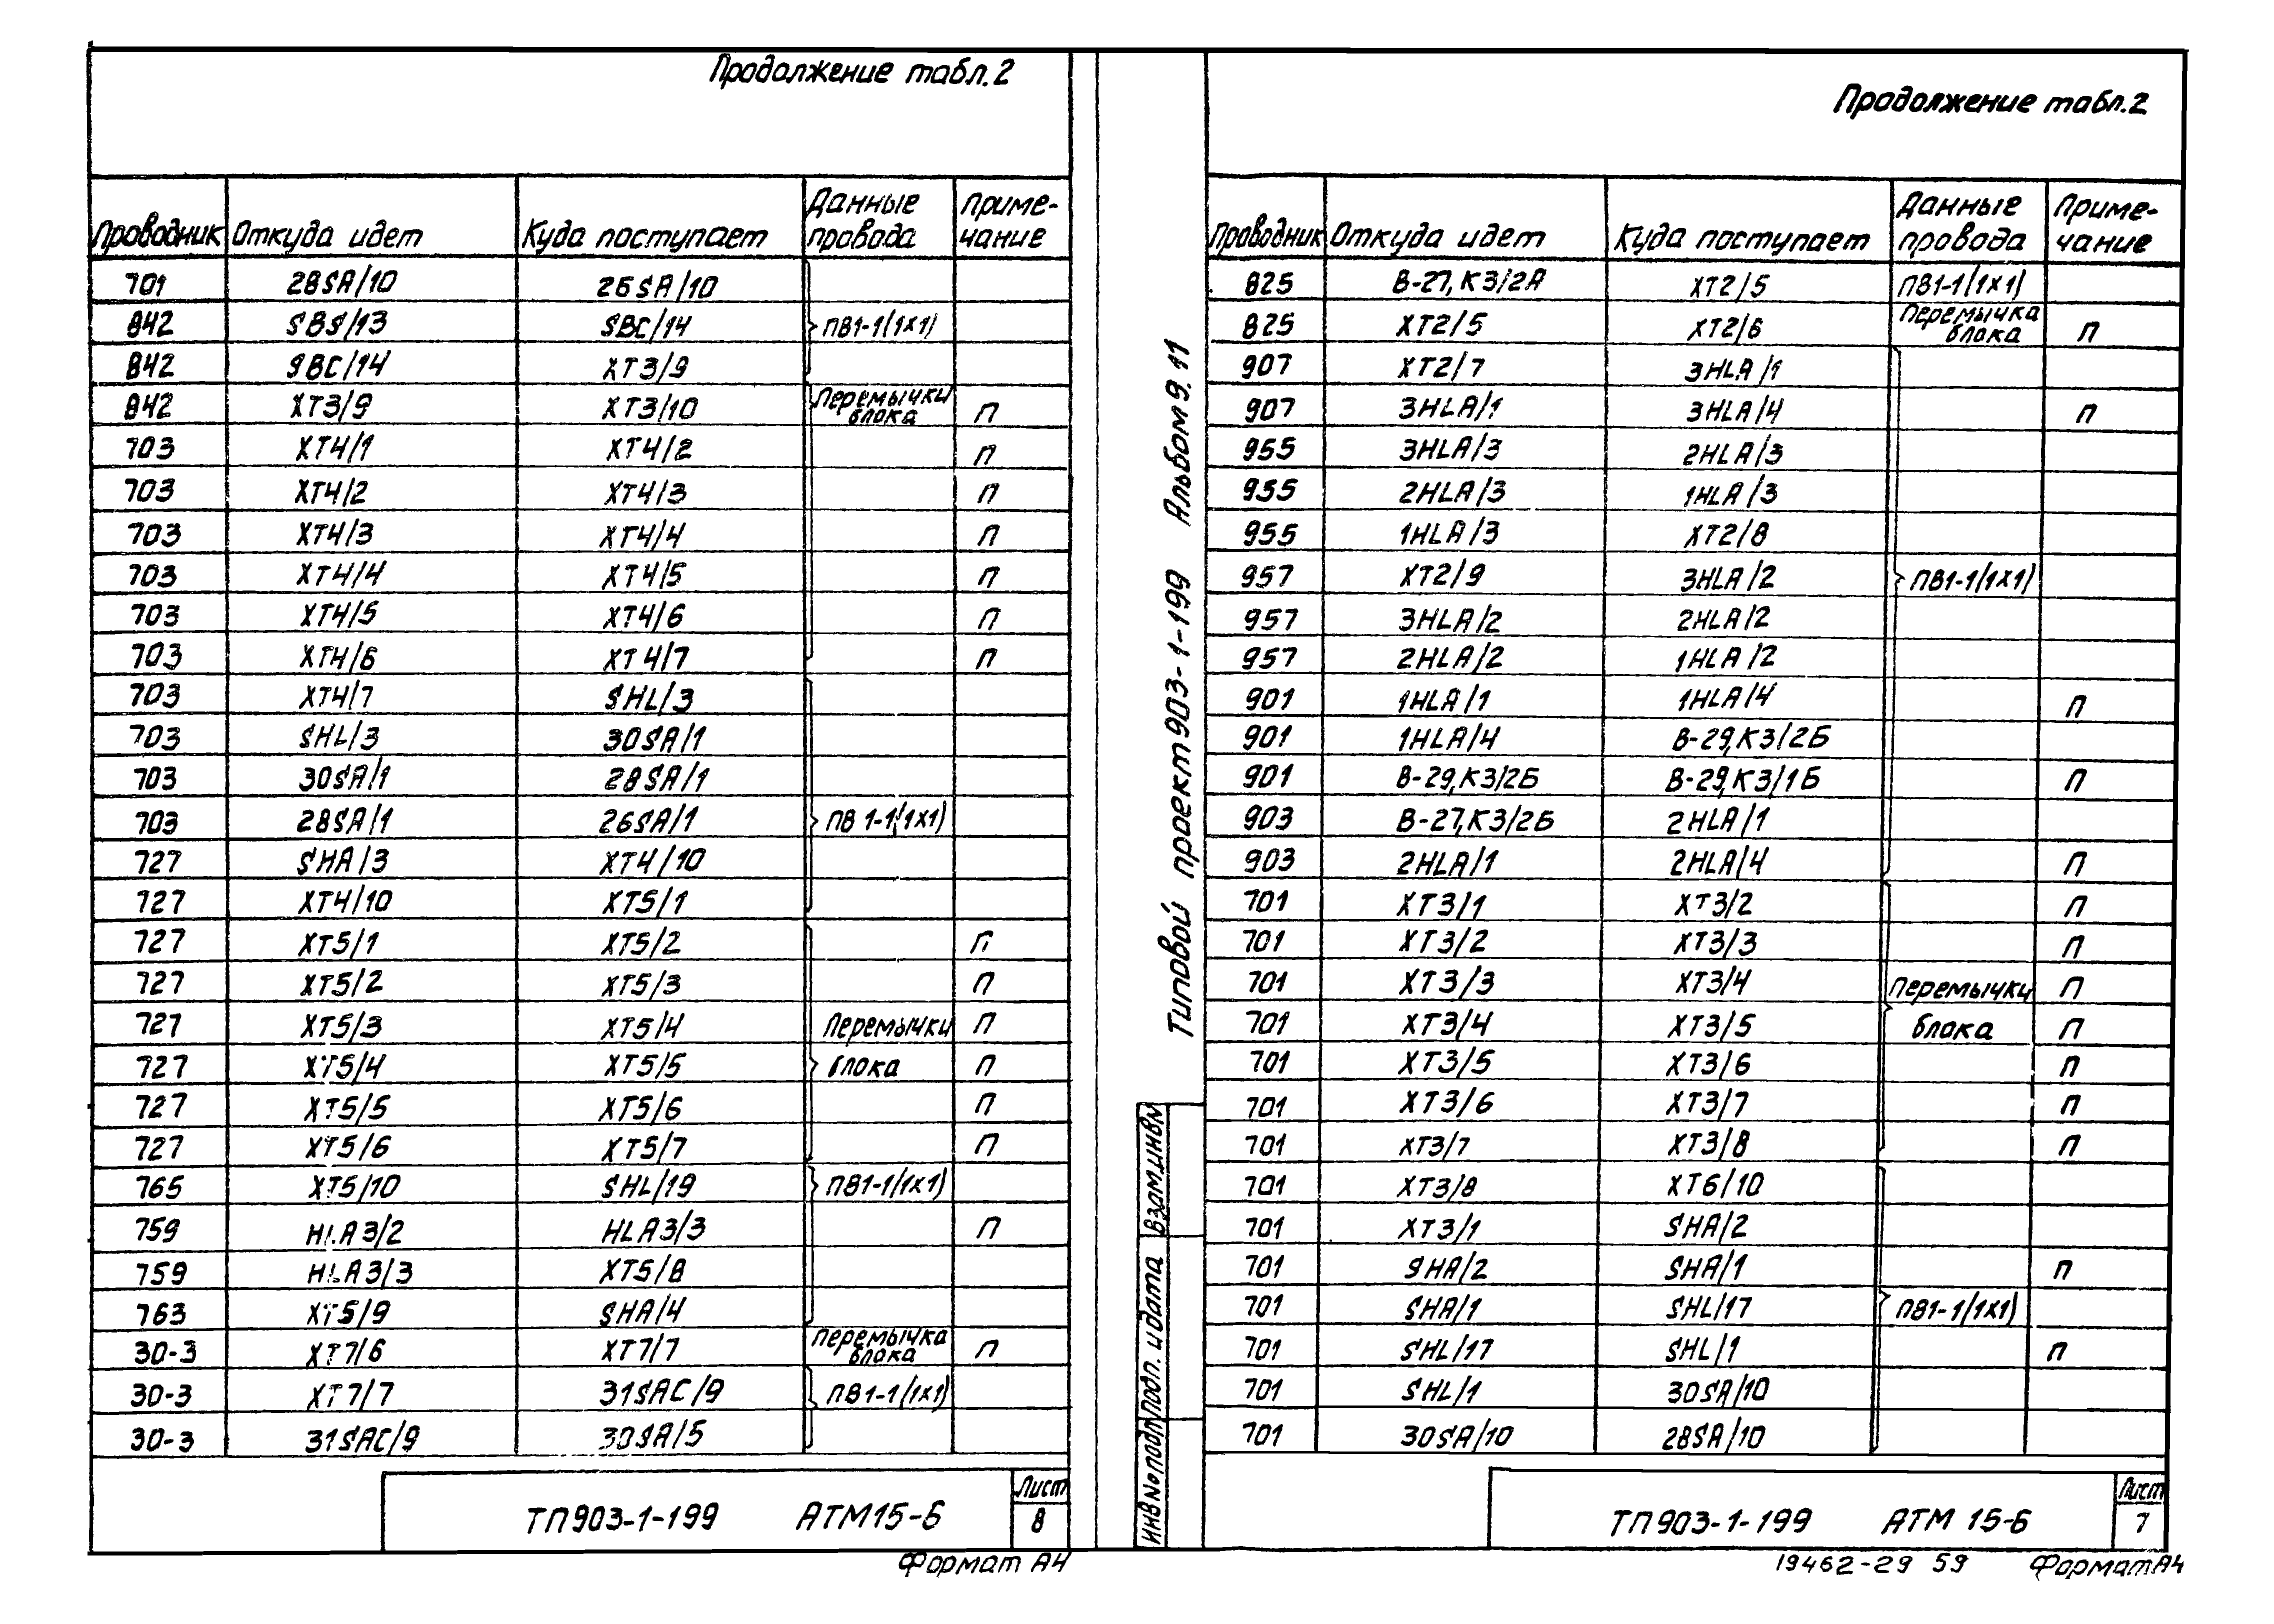 Продолжение табл.2
Проводник Откуда идет Куда поступает Данные провода Примечание
701 28SA/10 26SA/10
842 SBS/13 SBC/14 ПВ1-1(1х1)
842 SBC/14 XT3/9
842 XT3/9 XT3/10 Перемычки блока П
703 XT4/1 XT4/2 П
703 XT4/2 XT4/3 П
703 XT4/3 XT4/4 П
703 XT4/4 XT4/5 П
703 XT4/5 XT4/6 П
703 XT4/6 XT4/7 П
703 XT4/7 SHL/3
703 SHL/3 30SA/1
703 30SA/1 28SA/1
703 28SA/1 26SA/1 ПВ 1-1(1х1)
727 SHA/3 XT4/10
727 XT4/10 XT5/1
727 XT5/1 XT5/2 П
727 XT5/2 XT5/3 П
727 XT5/3 XT5/4 Перемычки П
727 XT5/4 XT5/5 блока П
727 XT5/5 XT5/6 П
727 XT5/6 XT5/7 П
765 XT5/10 SHL/19 ПВ1-1(1х1)
759 HLA3/2 HLA3/3 П
759 HLA3/3 XT5/8
763 XT5/9 SHA/4
30-3 XT7/6 XT7/7 Перемычка блока П
30-3 XT7/7 31SAC/9 ПВ1-1(1х1)
30-3 31SAC/9 30SA/5
ТП903-1-199 АТМ15-6 Лист 8
Формат А4
Типовой проект 903-1-199 Альбом 9.11
Взам.инв№
Подп. и дата
Инв№подл
Продолжение табл.2
Проводник Откуда идет Куда поступает Данные провода Примечание
825 В-27,К3/2А XT2/5 ПВ1-1(1х1)
825 XT2/5 XT2/6 Перемычка блока П
907 XT2/7 3HLA/1
907 3HLA/1 3HLA/4 П
955 3HLA/3 2HLA/3
955 2HLA/3 1HLA/3
955 1HLA/3 XT2/8
957 XT2/9 3HLA/2 ПВ1-1(1х1)
957 3HLA/2 2HLA/2
957 2HLA/2 1HLA/2
901 1HLA/1 1HLA/4 П
901 1HLA/4 В-29,К3/2Б
901 В-29,К3/2Б В-29,К3/1Б П
903 В-27,К3/2Б 2HLA/1
903 2HLA/1 2HLA/4 П
701 XT3/1 XT3/2 П
701 XT3/2 XT3/3 П
701 XT3/3 XT3/4 Перемычки П
701 XT3/4 XT3/5 блока П
701 XT3/5 XT3/6 П
701 XT3/6 XT3/7 П
701 XT3/7 XT3/8 П
701 XT3/8 XT6/10
701 XT3/1 SHA/2
701 SHA/2 SHA/1 П
701 SHA/1 SHL/17 ПВ1-1(1х1)
701 SHL/17 SHL/1 П
701 SHL/1 30SA/10
701 30SA/10 28SA/10
ТП903-1-199 АТМ 15-6 Лист 7
19462-29 59 Формат А4